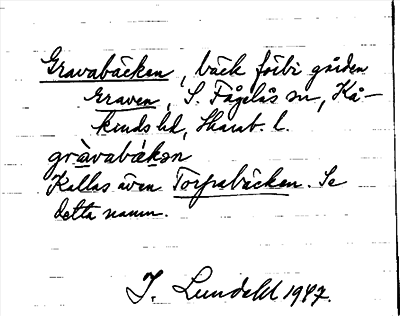 Gravabäcken, bäck förbi gården
Graven, S. Fågelås sn, Kå-
kinds hd, Skarab. l.
gràvabäkən
Kallas även Torpabäcken. Se
detta namn.
J. Lundahl 1947.